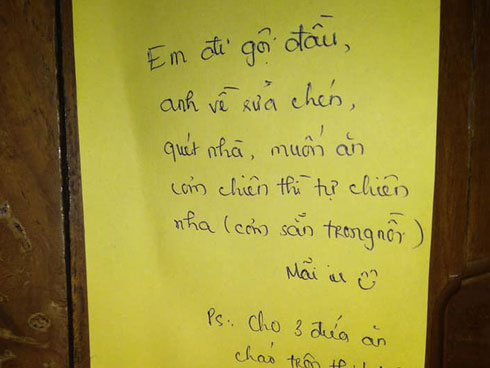 Em đi gội đầu,
anh về rửa chén,
quét nhà, muốn ăn
cơm chiên thì tự chiên
nha (cơm sẵn trong nồi)
Mãi iu
Ps: Cho 3 đứa ăn
cháo trộn